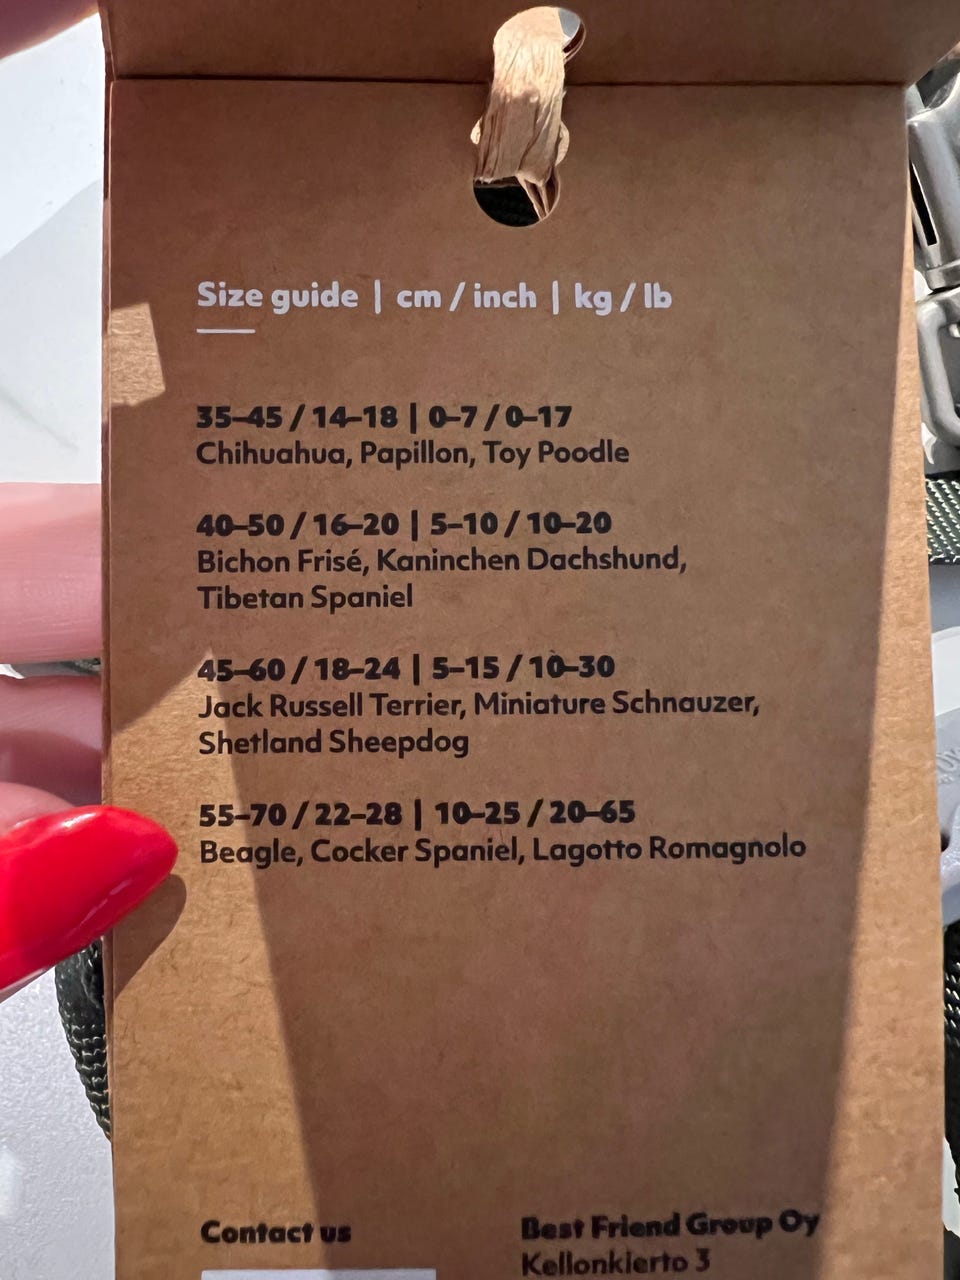 Size guide | cm / inch | kg / lb
35–45 / 14–18 | 0–7 / 0–17
Chihuahua, Papillon, Toy Poodle
40–50 / 16–20 | 5–10 / 10–20
Bichon Frisé, Kaninchen Dachshund,
Tibetan Spaniel
45–60 / 18–24 | 5–15 / 10–30
Jack Russell Terrier, Miniature Schnauzer,
Shetland Sheepdog
55–70 / 22–28 | 10–25 / 20–65
Beagle, Cocker Spaniel, Lagotto Romagnolo
Contact us
Best Friend Group Oy
Kellonkierto 3